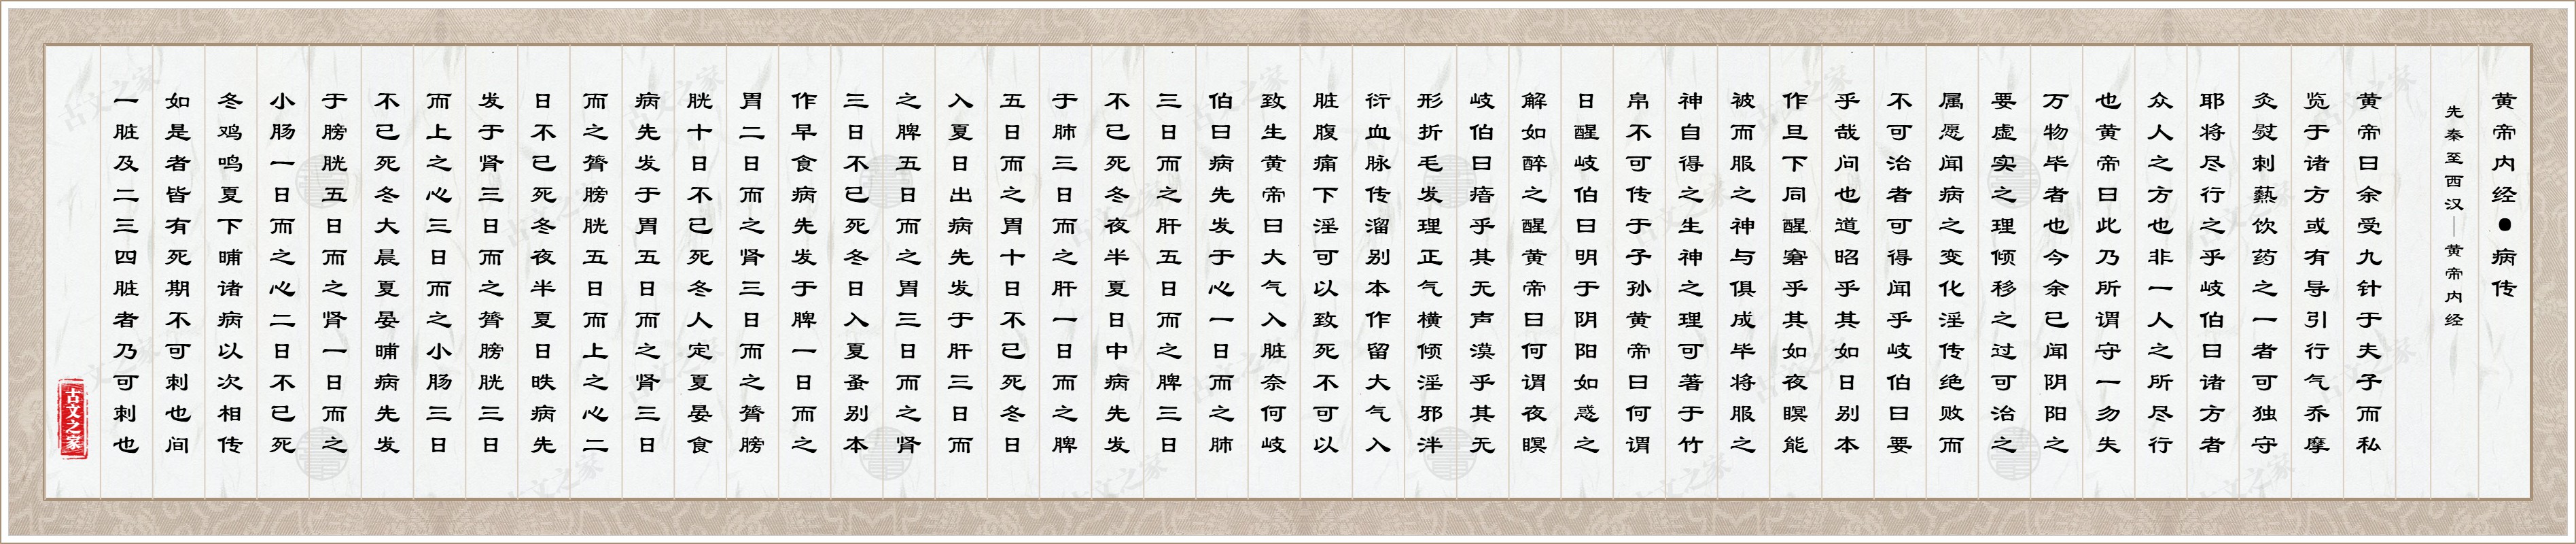 黄帝内经●病传
先秦至西汉—黄帝内经
黄帝曰余受九针于夫子而私
览于诸方或有导引行气乔摩
灸熨刺爇饮药之一者可独守
耶将尽行之乎岐伯曰诸方者
众人之方也非一人之所尽行
也黄帝曰此乃所谓守一勿失
万物毕者也今余已闻阴阳之
要虚实之理倾移之过可治之
属愿闻病之变化淫传绝败而
不可治者可得闻乎岐伯曰要
乎哉问也道昭乎其如日别本
作旦下同醒窘乎其如夜瞑能
被而服之神与俱成毕将服之
神自得之生神之理可著于竹
帛不可传于子孙黄帝曰何谓
日醒岐伯曰明于阴阳如惑之
解如醉之醒黄帝曰何谓夜瞑
岐伯曰瘖乎其无声漠乎其无
形折毛发理正气横倾淫邪泮
衍血脉传溜别本作留大气入
脏腹痛下淫可以致死不可以
致生黄帝曰大气入脏奈何岐
伯曰病先发于心一日而之肺
三日而之肝五日而之脾三日
不已死冬夜半夏日中病先发
于肺三日而之肝一日而之脾
五日而之胃十日不已死冬日
入夏日出病先发于肝三日而
之脾五日而之胃三日而之肾
三日不已死冬日入夏蚤别本
作早食病先发于脾一日而之
胃二日而之肾三日而之膂膀
胱十日不已死冬人定夏晏食
病先发于胃五日而之肾三日
而之膂膀胱五日而上之心二
日不已死冬夜半夏日昳病先
发于肾三日而之膂膀胱三日
而上之心三日而之小肠三日
不已死冬大晨夏晏晡病先发
于膀胱五日而之肾一日而之
小肠一日而之心二日不已死
冬鸡鸣夏下晡诸病以次相传
如是者皆有死期不可刺也间
一脏及二三四脏者乃可刺也
古文之家